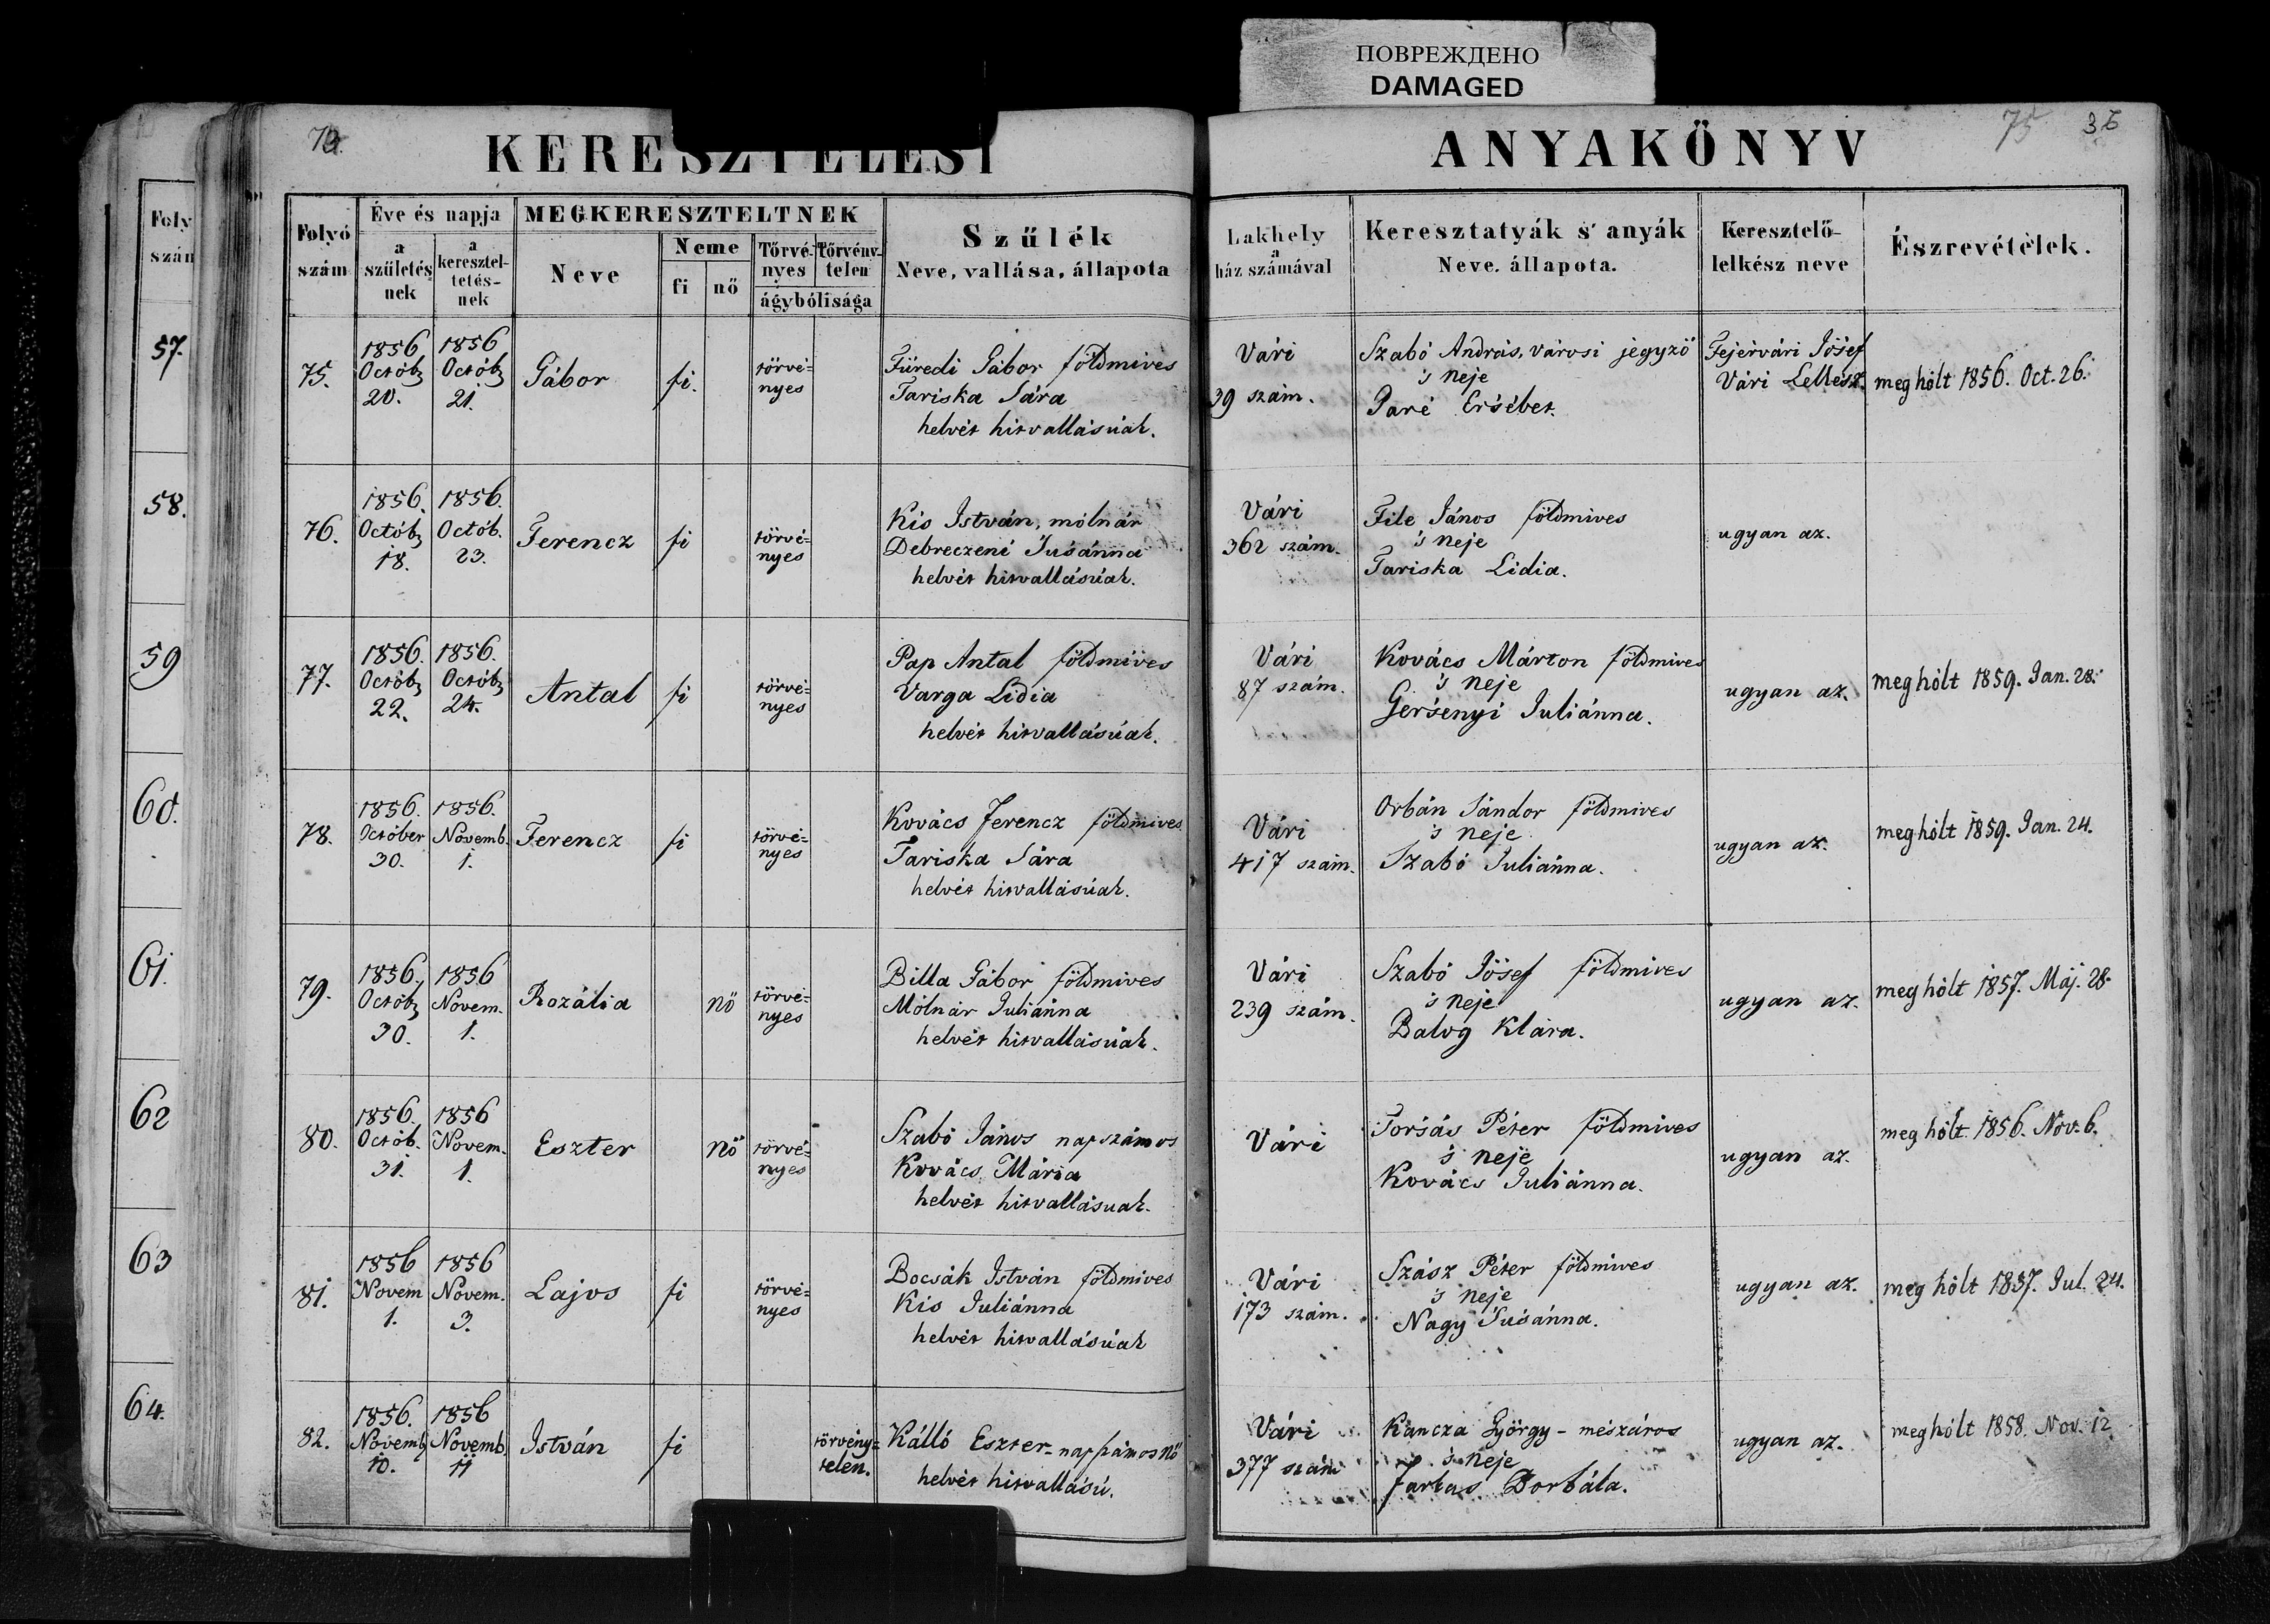 ПОВРЕЖДЕНО
DAMAGED
75
36
KERESZTELÉSI ANYAKÖNYV
Foly
szám
57.
58.
59
60.
61.
62
63
64.
Folyó szám
Éve és napja
a születésnek
a kereszteltetés-nek
MEGKERESZTELTNEK
Neve
Neme
fi
nő
Törvé-nyes
Törvény-telen
ágybólisága
Szűlék
Neve, vallása, állapota
Lakhely
a
ház számával
Keresztatyák s' anyák
Neve. állapota.
Keresztelő-
lelkész neve
Észrevételek.
75.
1856 Octób 20.
1856 Octób 21.
Gábor
fi.
törvé=
nyes
Füredi Gábor földmives
Tariska Sára
helvét hitvallásúak.
Vári
39 szám.
Szabó András, városi jegyző
's neje
Paré Ersébet.
Fejérvári Jósef
Vári Lellkész.
meghólt 1856. Oct. 26.
76.
1856. Octób 18.
1856. Octób. 23.
Ferencz
fi
törvé=
nyes
Kis István, mólnár
Debreczeni Susánna
helvét hitvallásúak.
Vári
362 szám.
File János földmives
's neje
Tariska Lidia.
ugyan az.
77.
1856. Octób 22.
1856. Octób 24.
Antal
fi
törvé=
nyes
Pap Antal földmives
Varga Lidia
helvét hitvallásúak.
Vári
87 szám.
Kovács Márton földmives
's neje
Gersenyi Juliánna.
ugyan az.
meghólt 1859. Jan. 28.
78.
1856. Október 30.
1856. Novemb. 1.
Ferencz
fi
törvé=
nyes
Kovács Ferencz földmives
Tariska Sára
helvét hitvallásúak.
Vári
417 szám.
Orbán Sándor földmives
's neje
Szabó Juliánna.
ugyan az.
meghólt 1859. Jan. 24.
79.
1856. Octób 30.
1856 Novem. 1.
Rozália
nő
törvé=
nyes
Billa Gábor földmives
Mólnár Juliánna
helvét hitvallásúak.
Vári
239 szám.
Szabó Jósef földmives
's neje
Balog Klára.
ugyan az.
meghólt 1857. Máj. 28.
80.
1856. Octób. 31.
1856 Novem. 1.
Eszter
nő
törvé=
nyes
Szabó János napszámos
Kovács Mária
helvét hitvallásuak.
Vári
Forsás Péter földmives
's neje
Kovács Juliánna.
ugyan az.
meghólt 1856. Nov. 6.
81.
1856 Novem 1.
1856 Novem. 3.
Lajos
fi
törvé=
nyes
Bocsák István földmives
Kis Juliánna
helvét hitvallásúak
Vári
173 szám.
Szász Péter földmives
's neje
Nagy Susánna.
ugyan az.
meghólt 1857. Jul. 24.
82.
1856. Novemb 10.
1856 Novemb 11
István
fi
törvény=
telen.
Kálló Eszter - napszámos nő
helvét hitvallású.
Vári
377 szám
Kancza György - mészáros
's neje
Farkas Borbála.
ugyan az.
meghólt 1858. Nov. 12